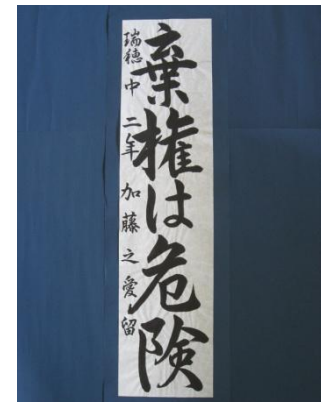 棄権は危険
瑞穂中二年加藤之愛留